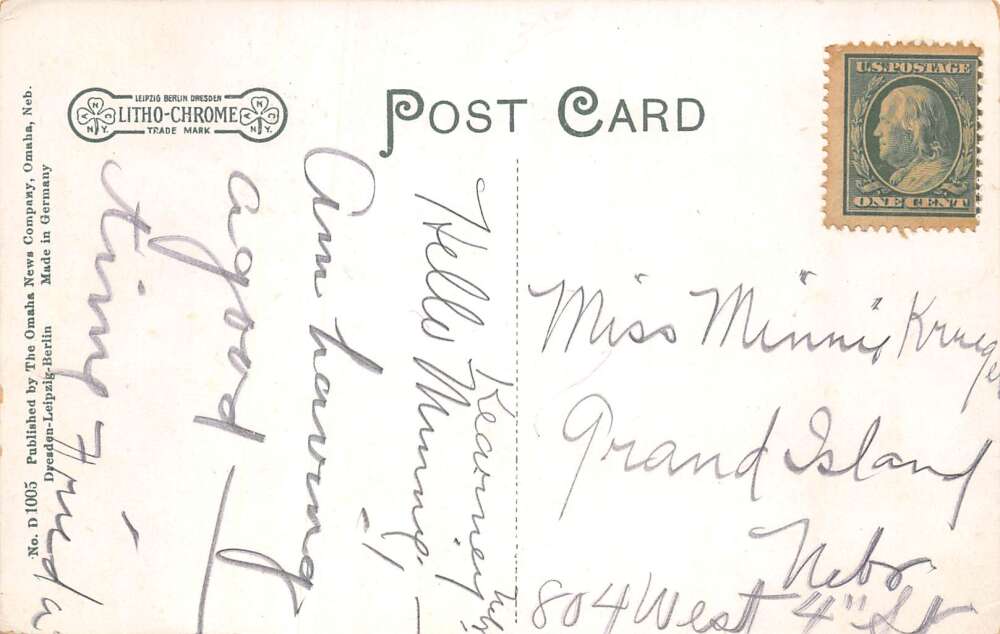 LEIPZIG BERLIN DRESDEN
LITHO-CHROME
TRADE MARK
POST CARD
U.S. POSTAGE
ONE CENT
No. D 1005 Published by The Omaha News Company, Omaha, Neb.
Dresden-Leipzig-Berlin Made in Germany
Kearney
Hello Minnie,
Am having
a good
time Frieda
Miss Minnie Krueger
Grand Island
Nebr
804 West 4" St